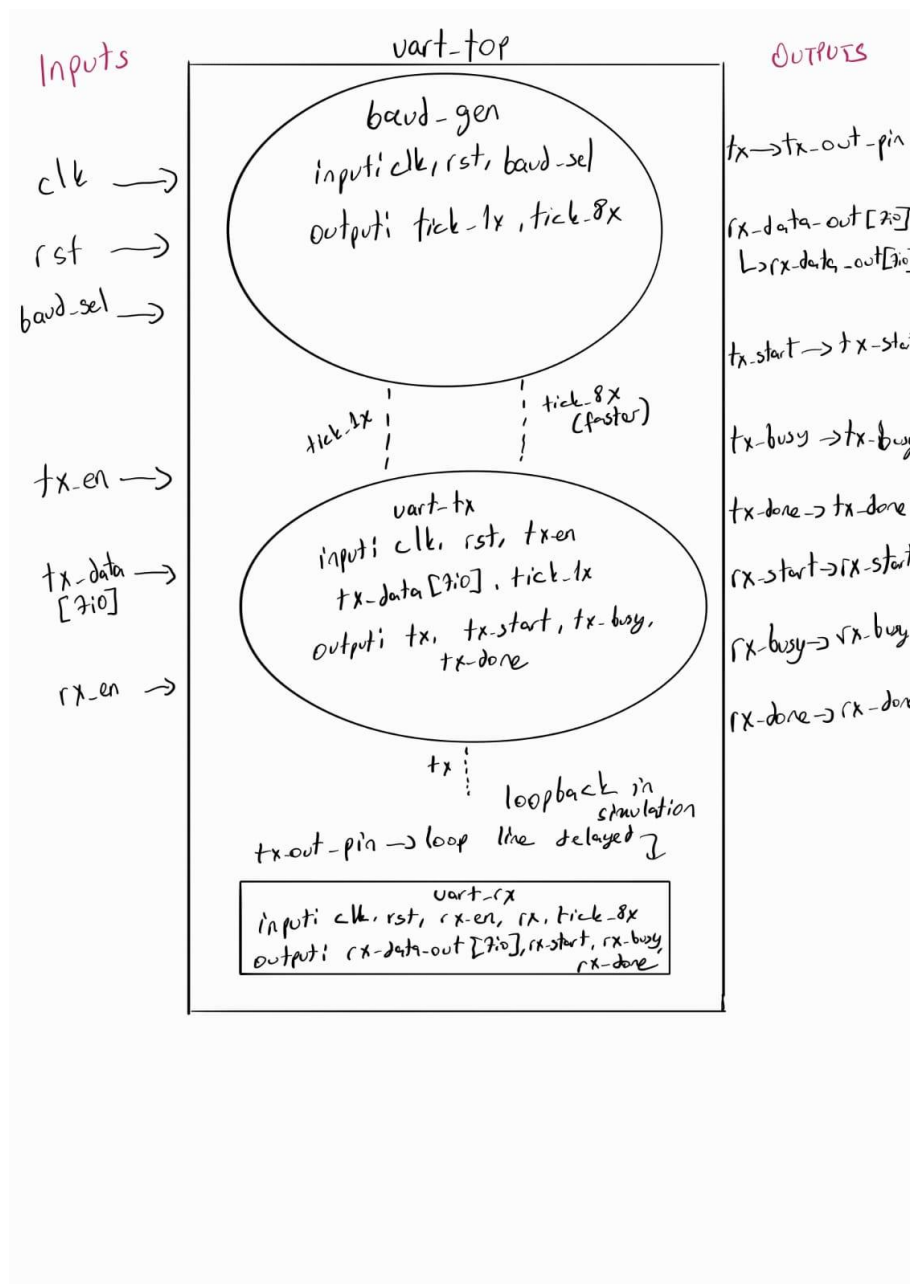 Inputs
uart_top
OUTPUTS
clk →
rst →
baud_sel →
tx_en →
tx_data →
[7:0]
rx_en →
baud_gen
input: clk, rst, baud_sel
output: tick_1x, tick_8x
tick_1x
tick_8x
(faster)
uart_tx
input: clk, rst, tx_en
tx_data [7:0], tick_1x
output: tx, tx_start, tx_busy,
tx_done
tx
loopback in
simulation
tx_out_pin → loop line delayed
uart_rx
input: clk, rst, rx_en, rx, tick_8x
output: rx_data_out [7:0], rx_start, rx_busy,
rx_done
tx → tx_out_pin
rx_data_out [7:0]
↳ rx_data_out [7:0]
tx_start → tx_sta
tx_busy → tx_busy
tx_done → tx_done
rx_start → rx_start
rx_busy → rx_busy
rx_done → rx_don